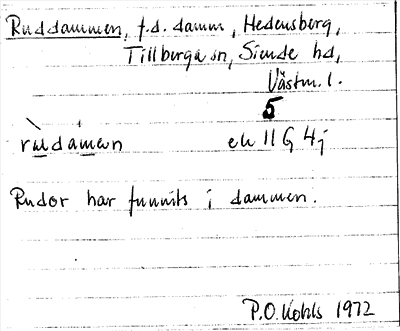 Ruddammen, f.d. damm, Hedensberg,
Tillberga sn, Siende hd,
Västm. l.
5
rùdámen ek 11 G 4j
Rudor har funnits i dammen.
P.O. Kohls 1972